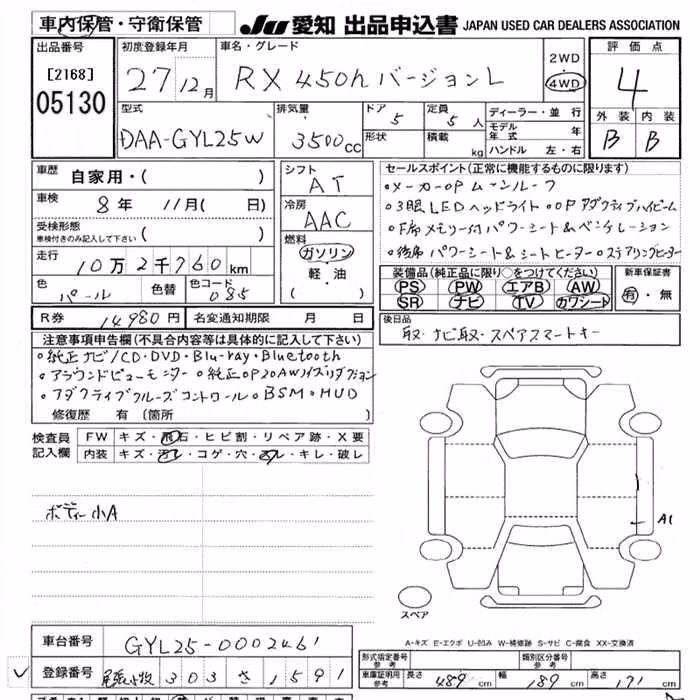 車内保管・守衛保管 JU 愛知 出品申込書 JAPAN USED CAR DEALERS ASSOCIATION
出品番号 初度登録年月 車名・グレード 評価点
[2168] 27年12月 RX 450h バージョンL 2WD 4WD 4
05130 型式 排気量 ドア 定員 ディーラー・並行 外装 内装
DAA-GYL25W 3500cc 5 5人 モデル年式 年 B B
形状 積載 kg ハンドル 左・右
車歴 自家用・( ) シフト AT セールスポイント(正常に機能するものに限ります)
車検 8年 11月( 日) 冷房 AAC ・メーカーOP ムーンルーフ
・3眼LEDヘッドライト・OPアダプティブハイビーム
受検形態 車検付きのみ記入して下さい ( ) 燃料 ・F席メモリー付パワーシート&ベンチレーション
走行 10万2千760km ガソリン ・後席パワーシート&シートヒーター・ステアリングヒーター
色 パール 色替 色コード 085 軽・油 ( )
装備品(純正品に限り○をつけてください) 新車保証書
PS PW エアB AW 有・無
SR ナビ TV カワシート
R券 14980円 名変通知期限 月 日 後日品
取・ナビ取・スペアスマートキー
注意事項申告欄(不具合内容等は具体的に記入して下さい)
・純正ナビ/CD・DVD・Blu-ray・Bluetooth
・アラウンドビューモニター・純正OP20AWノイズリダクション
・アダプティブクルーズコントロール・BSM・HUD
修復歴 有(箇所
検査員記入欄 FW キズ・飛石・ヒビ割・リペア跡・X要
内装 キズ・汚レ・コゲ・穴・スレ・キレ・破レ
ボディー小A
A1
スペア
A-キズ E-エクボ U-凹み W-補修跡 S-サビ C-腐食 XX-交換済
車台番号 GYL25-0002461 形式指定番号 参考 類別区分番号 参考
登録番号 尾張小牧 303 さ 1591 車庫証明用 参考 長さ 489cm 幅 189cm 高さ 171cm